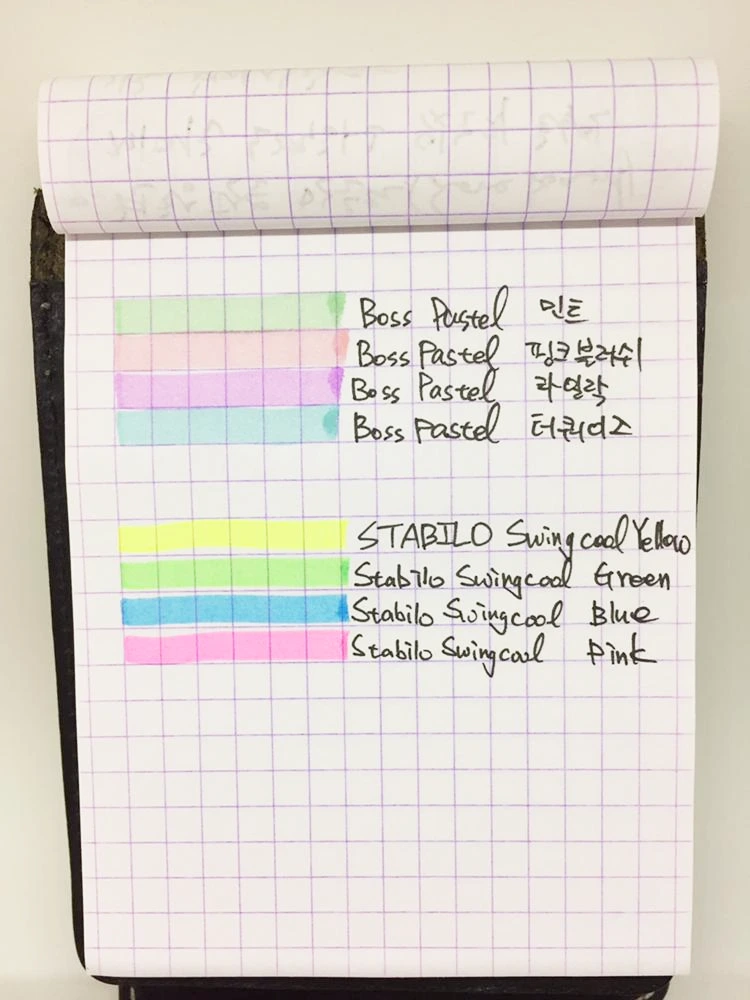 Boss Pastel 민트
Boss Pastel 핑크블러쉬
Boss Pastel 라일락
Boss Pastel 터쿼이즈
STABILO Swing cool Yellow
Stabilo Swing cool Green
Stabilo Swing cool Blue
Stabilo Swing cool Pink